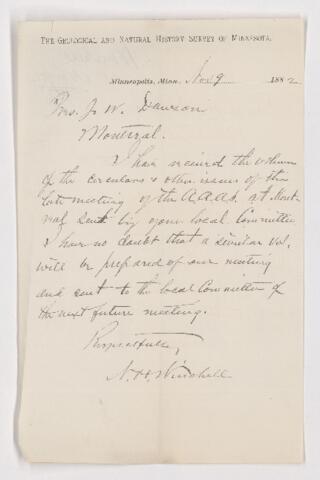 THE GEOLOGICAL AND NATURAL HISTORY SURVEY OF MINNESOTA.
Minneapolis, Minn. Nov 9 1882
J. W. Dawson
Montreal.
I have received the volume
of the circulars & other issues of the
late meeting of the A.A.A.S. at Mont-
real sent by your local Committee
I have no doubt that a similar vol.
will be prepared of our meeting
and sent to the local Committee of
the next future meeting.
Respectfully,
N. H. Winchell